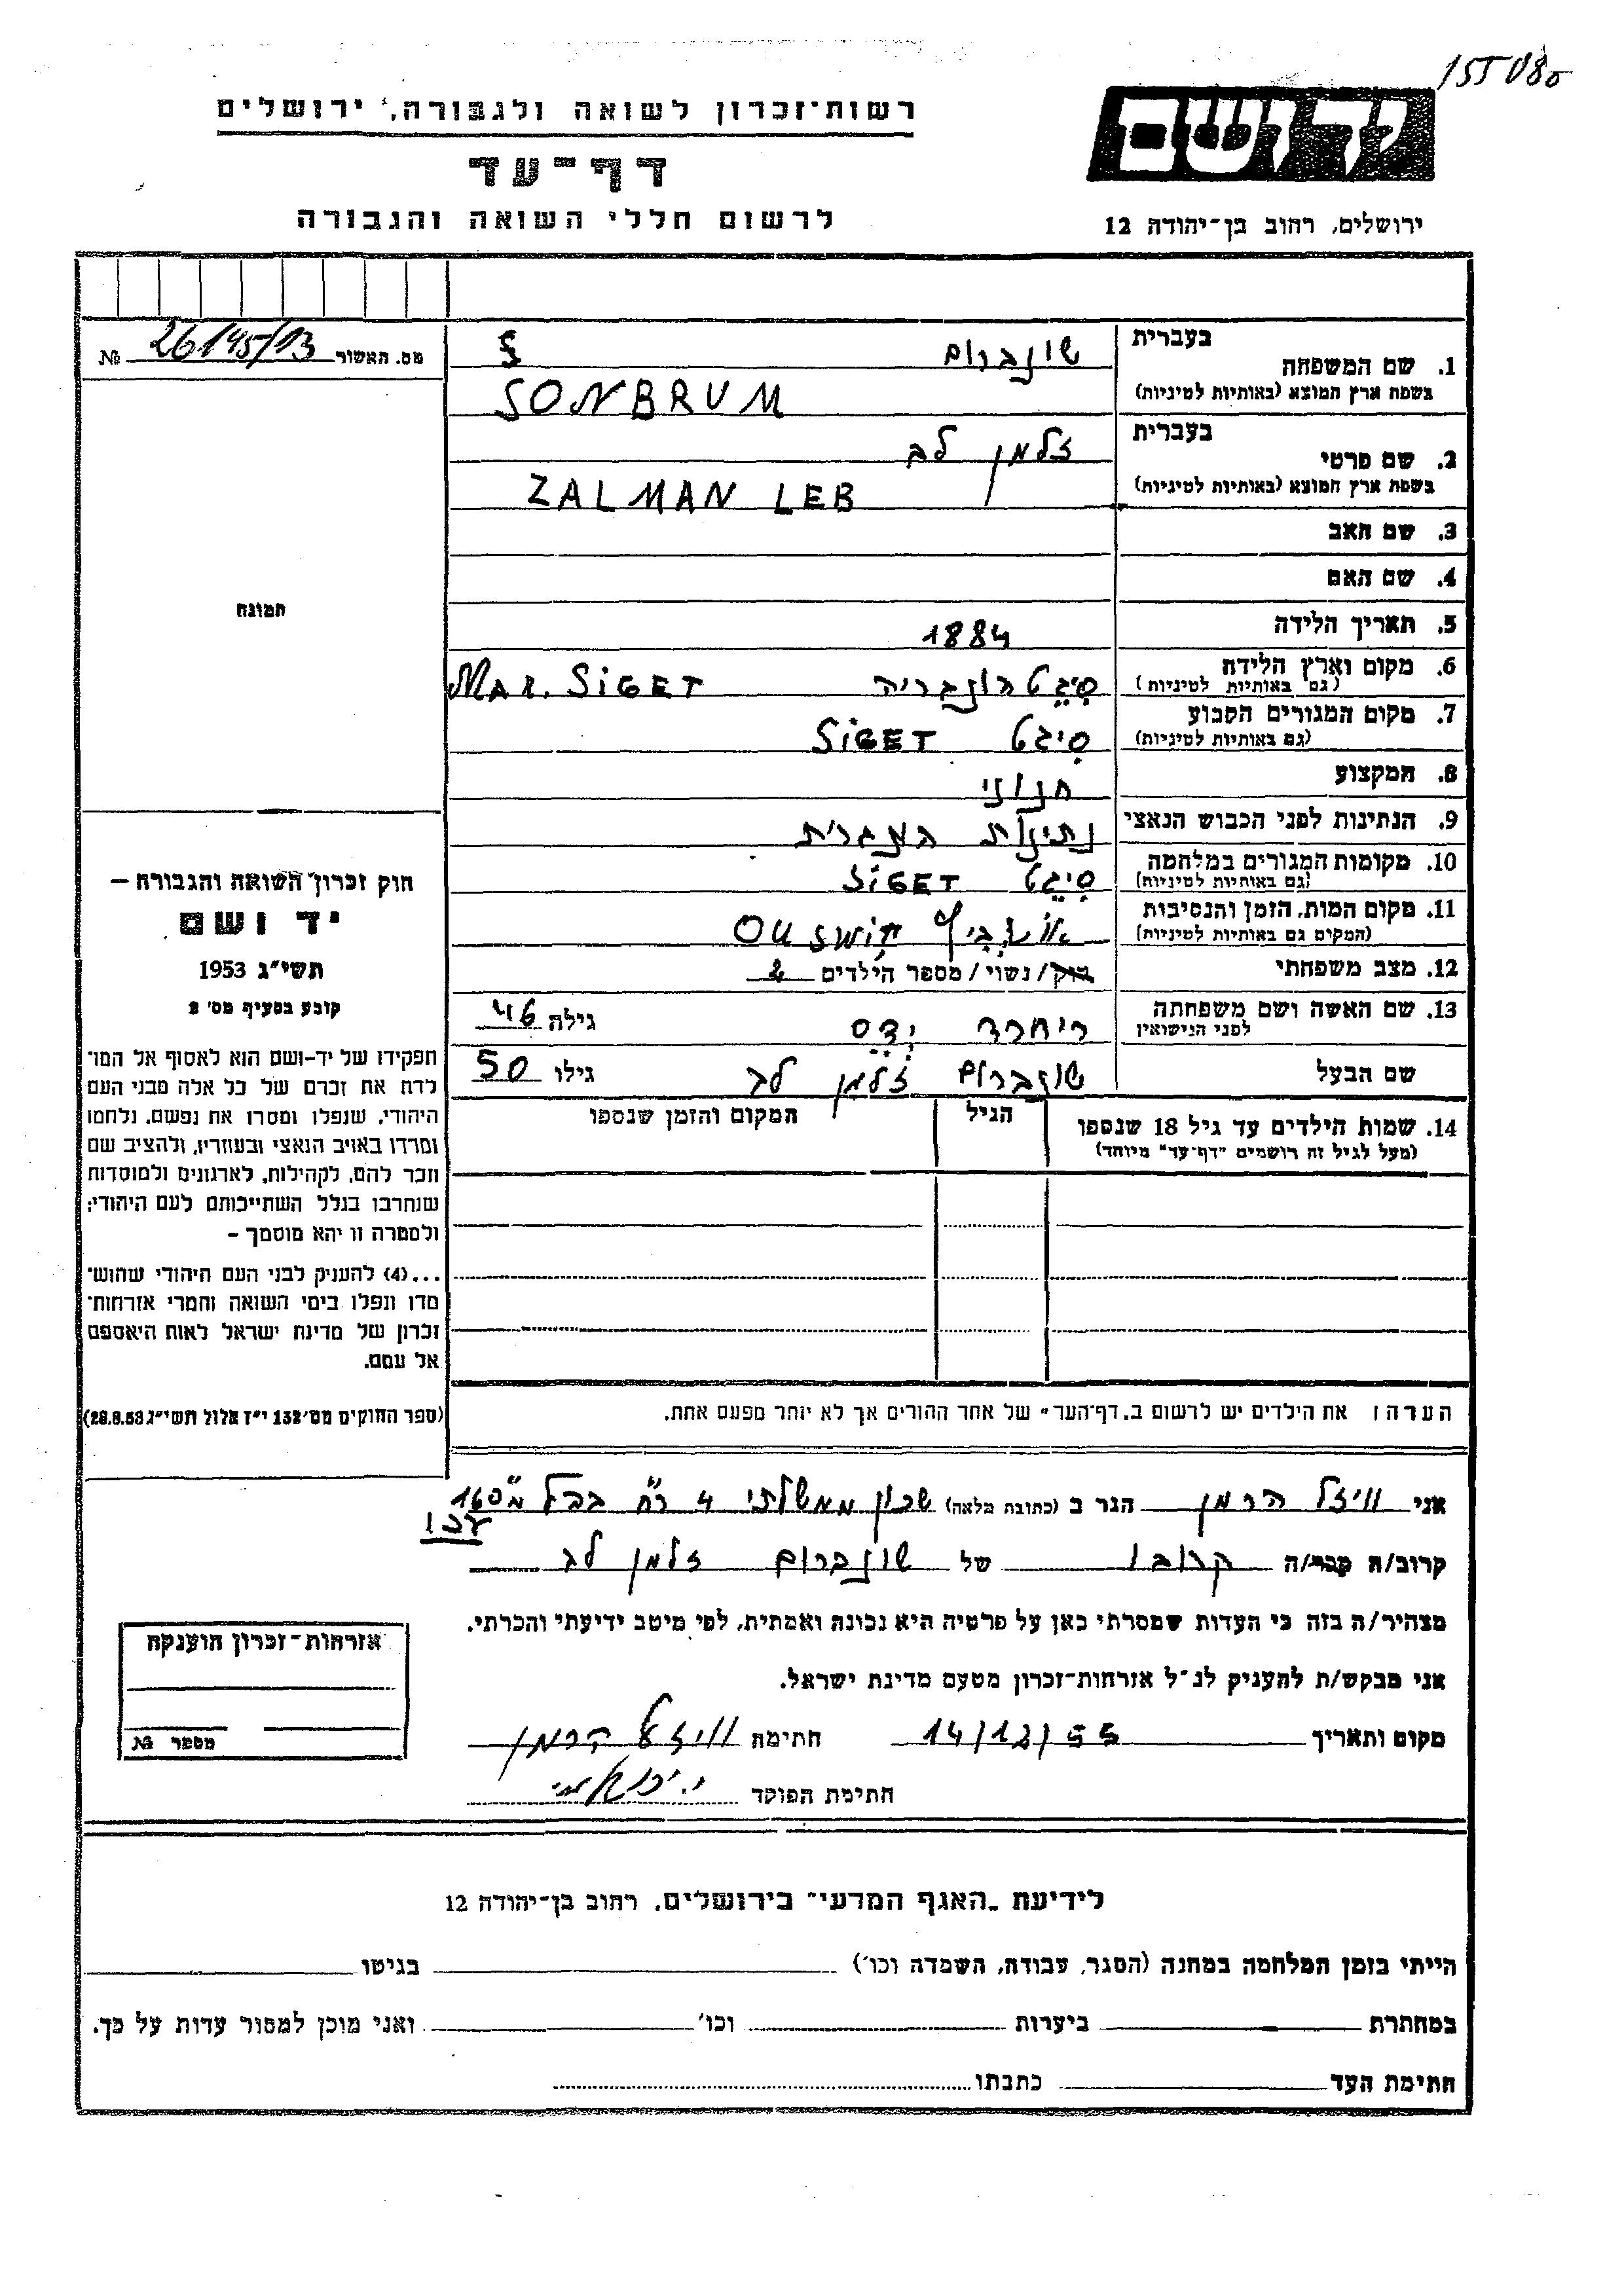 רשות־זכרון לשואה ולגבורה, ירושלים
דף־עד
לרשום חללי השואה והגבורה
ידושם
ירושלים, רחוב בן־יהודה 12
מס. האשור 26145/13 №
בעברית שונברום
1. שם המשפחה
בשפת ארץ המוצא (באותיות לטיניות) SONBRUM
בעברית זלמן לב
2. שם פרטי
בשפת ארץ המוצא (באותיות לטיניות) ZALMAN LEB
3. שם האב
4. שם האם
5. תאריך הלידה 1884
6. מקום וארץ הלידה סיגט הונגריה MAR. SIGET
(גם באותיות לטיניות)
7. מקום המגורים הקבוע סיגט SIGET
(גם באותיות לטיניות)
8. המקצוע חנוני
9. הנתינות לפני הכבוש הנאצי נתינות הונגרית
10. מקומות המגורים במלחמה סיגט SIGET
(גם באותיות לטיניות)
11. מקום המות, הזמן והנסיבות OUSWIH
(המקום גם באותיות לטיניות)
12. מצב משפחתי רוק/נשוי/מספר הילדים 2
13. שם האשה ושם משפחתה ריחרד גילה 46
לפני הנישואין
שם הבעל שונברום זלמן לב גילו 50
14. שמות הילדים עד גיל 18 שנספו הגיל המקום והזמן שנספו
(מעל לגיל זה רושמים "דף־עד" מיוחד)
הערה: את הילדים יש לרשום ב„דף־העד" של אחד ההורים אך לא יותר מפעם אחת.
תמונה
חוק זכרון השואה והגבורה –
יד ושם
תשי"ג 1953
קובע בסעיף מס' 2
תפקידו של יד-ושם הוא לאסוף אל המו־
לדת את זכרם של כל אלה מבני העם
היהודי, שנפלו ומסרו את נפשם, נלחמו
ומרדו באויב הנאצי ובעוזריו, ולהציב שם
וזכר להם, לקהילות, לארגונים ולמוסדות
שנחרבו בגלל השתייכותם לעם היהודי;
ולמטרה זו יהא מוסמך –
...(4) להעניק לבני העם היהודי שהוש־
מדו ונפלו בימי השואה והמרי אזרחות־
זכרון של מדינת ישראל לאות היאספם
אל עמם.
(ספר החוקים מס' 132 י"ז אלול תשי"ג 28.8.53)
אני וויזל הרמן הגר ב (כתובת מלאה) שכון ממשלתי 4
קרוב/ה מכר/ה קרובו של שונברום זלמן לב
מצהיר/ה בזה כי העדות שמסרתי כאן על פרטיה היא נכונה ואמתית, לפי מיטב ידיעתי והכרתי.
אני מבקש/ת להעניק לנ"ל אזרחות־זכרון מטעם מדינת ישראל.
מקום ותאריך 14/12/55 חתימה וויזל הרמן
חתימת הפוקד
אזרחות־זכרון הוענקה
מספר №
לידיעת „האגף המדעי" בירושלים, רחוב בן־יהודה 12
הייתי בזמן המלחמה במחנה (הסגר, עבודה, השמדה וכו') בגיטו
במחתרת ביערות וכו' ואני מוכן למסור עדות על כך.
חתימת העד כתבתו